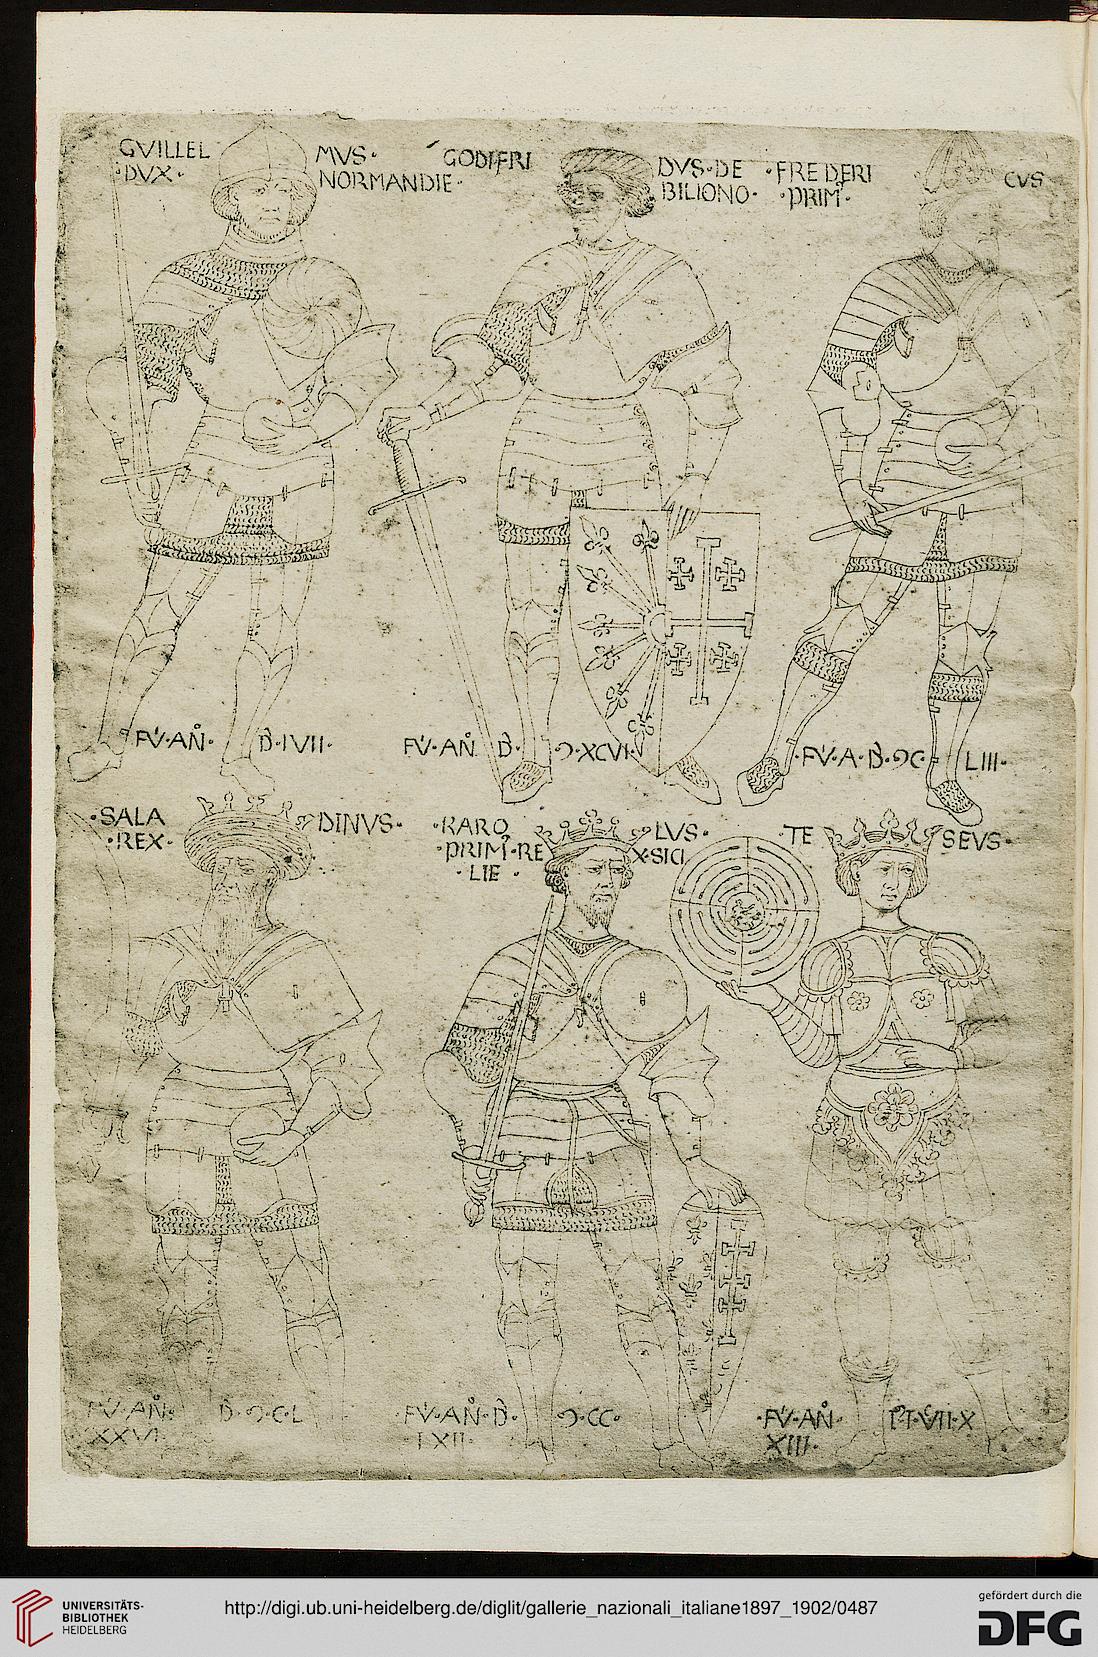 GVILLEL MVS·
·DVX· NORMANDIE·
GODIFRI DVS·DE
BILIONO·
·FREDERI CVS
·PRIM·
FV·AN̊· D·IVII·
FV·AN̊ D· Ↄ·XCVI·
·FV·A·D·ↃC· LIII·
·SALA DINVS·
·REX·
·KARO LVS·
·PRIM·RE X·SICI
·LIE·
TE SEVS·
FV·AN̊· D·Ↄ·C·L
XXVI
FV·AN̊·D· Ↄ·CC·
LXII·
·FV·AN̊·
XIII·
UNIVERSITÄTS-
BIBLIOTHEK
HEIDELBERG
http://digi.ub.uni-heidelberg.de/diglit/gallerie_nazionali_italiane1897_1902/0487
gefördert durch die
DFG